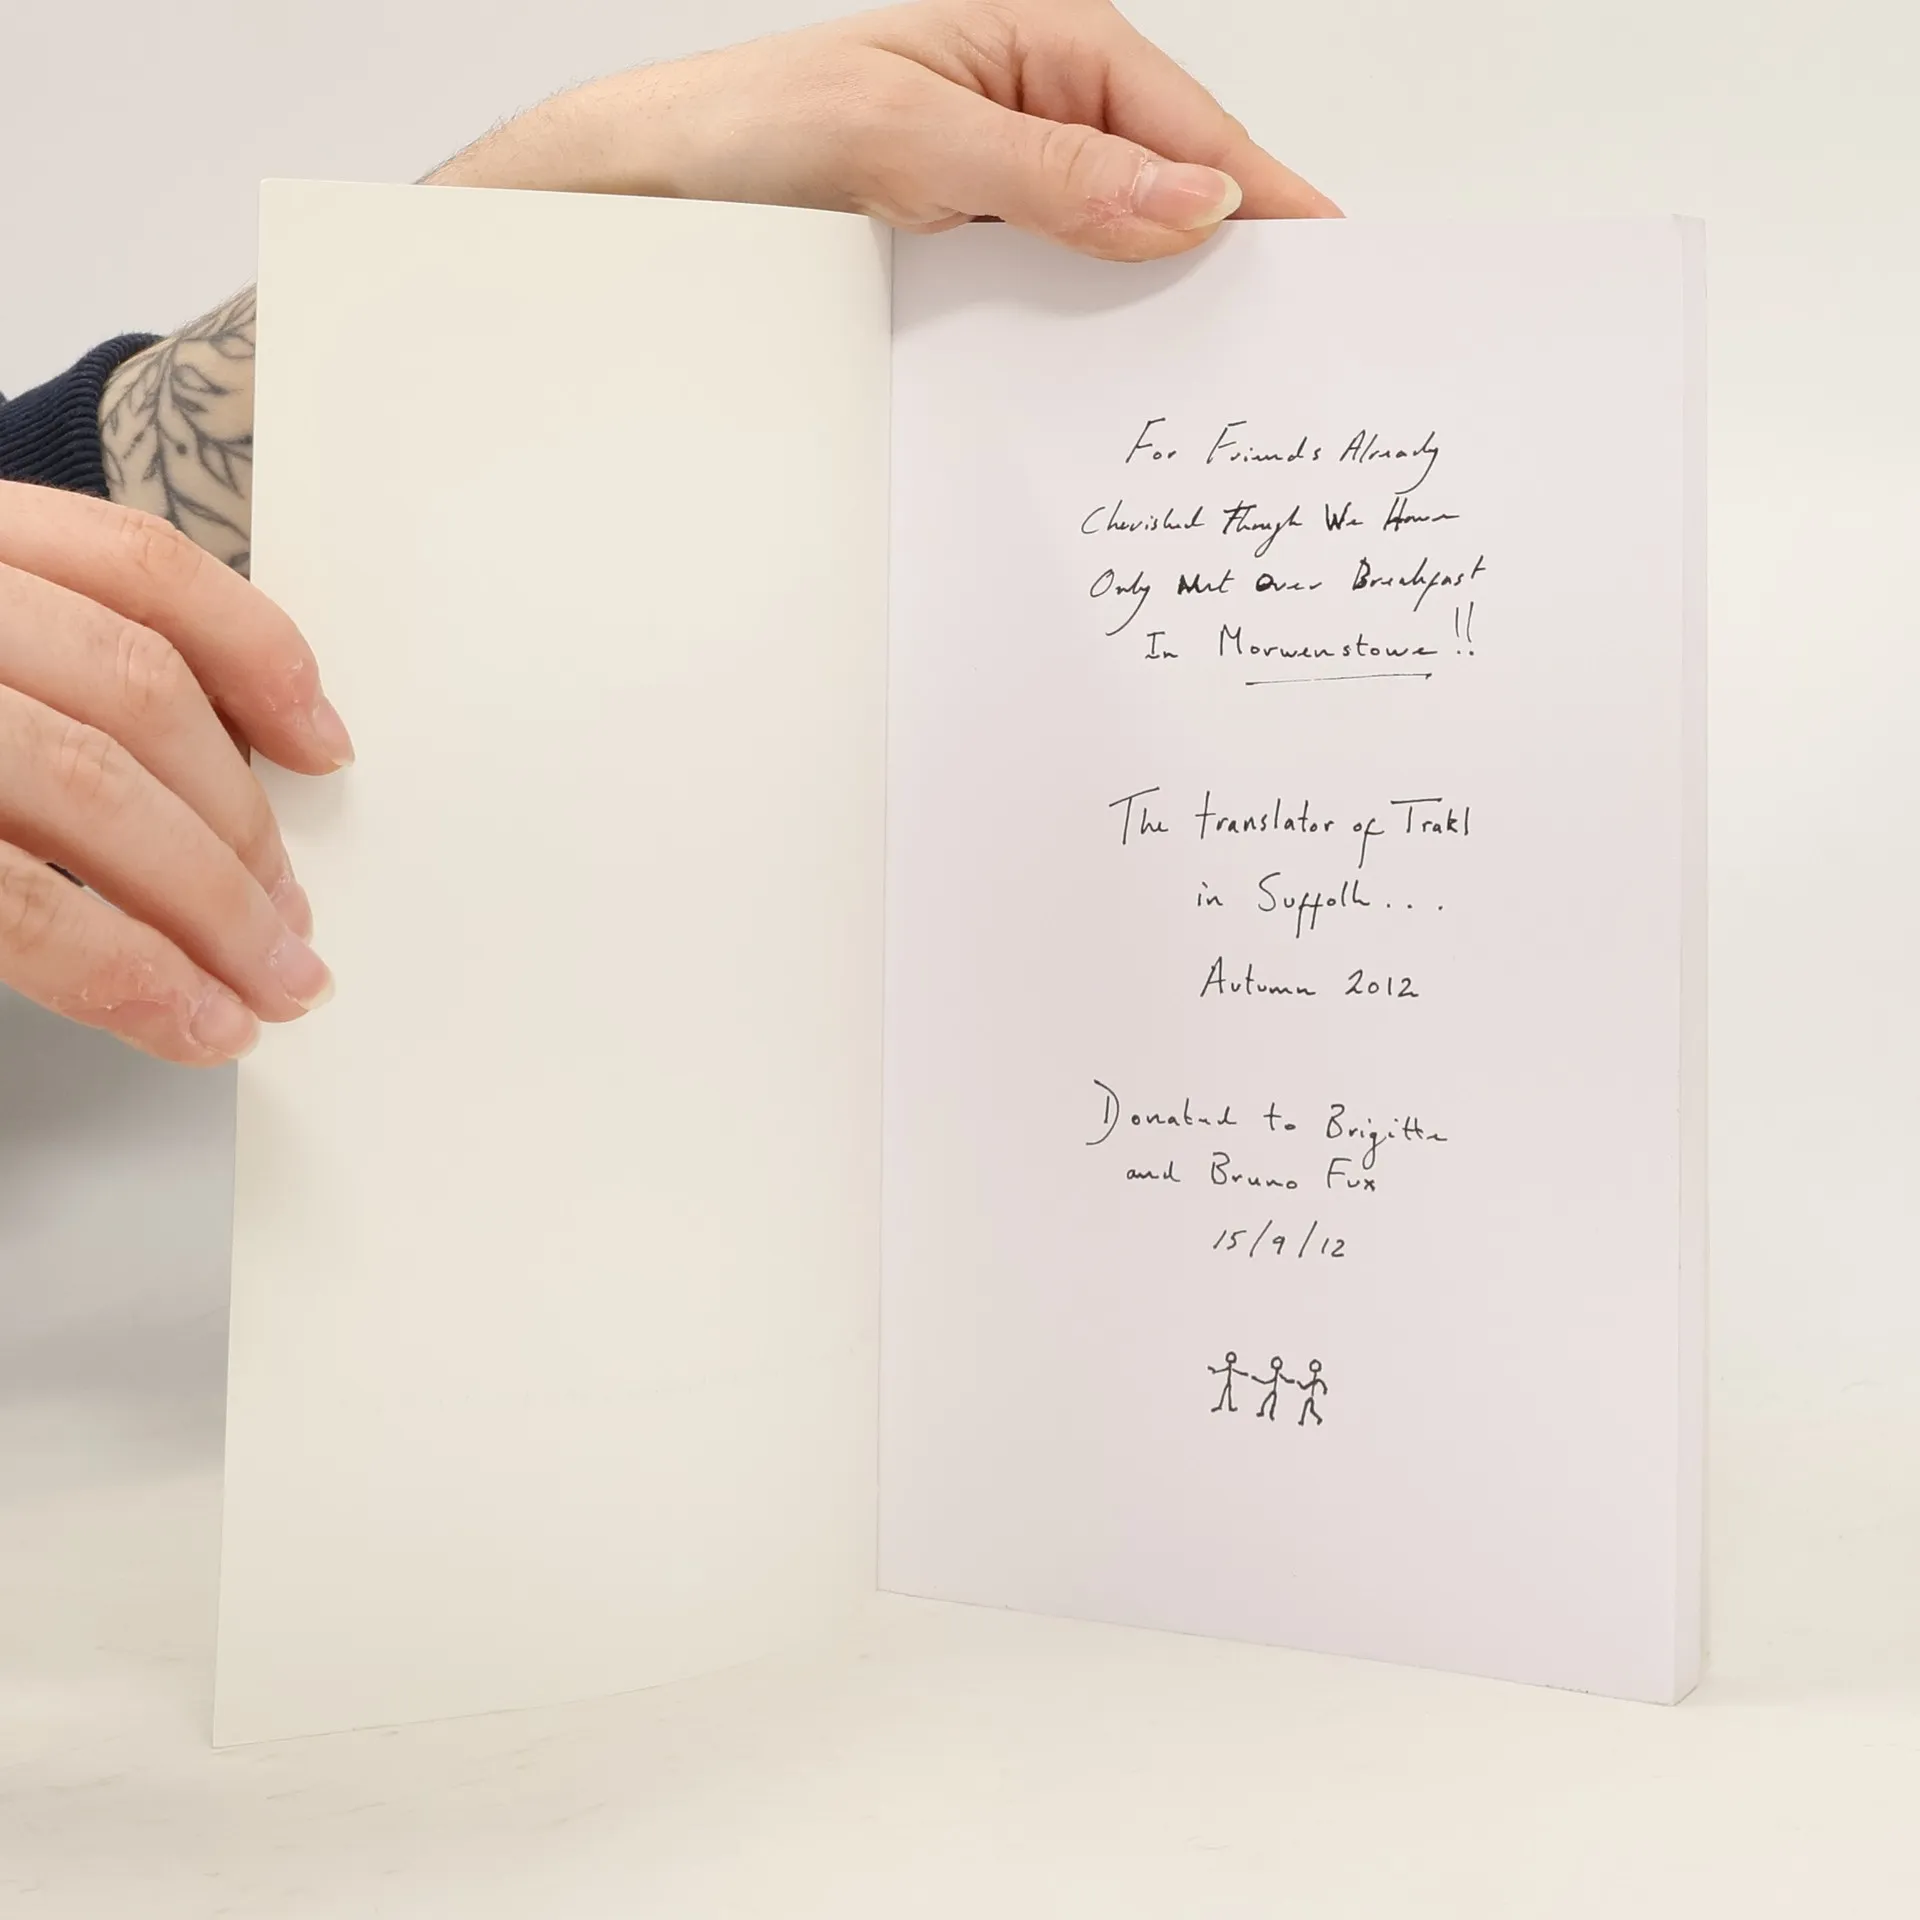 For Friends Already
Cherished Though We Have
Only Met Over Breakfast
In Morwenstowe!!
The translator of Trakl
in Suffolk...
Autumn 2012
Donated to Brigitte
and Bruno Fux
15/9/12